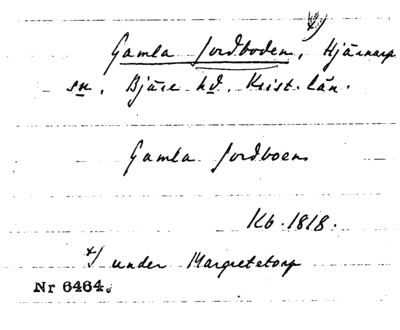 x)
Gamla Jordboden, Hjärnarp
sn, Bjäre hd. Krist. län.
Gamla Jordboen
Kb. 1818.
x) under Margretetorp
Nr 6464.